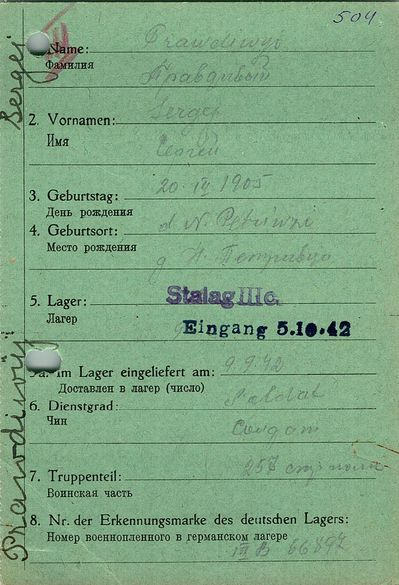 504
1. Name: Prawdiwyj
Фамилия Правдивый
2. Vornamen: Sergej
Имя Сергей
3. Geburtstag: 20. IV 1905
День рождения
4. Geburtsort: d. N. Petriwzi
Место рождения
5. Lager: Stalag III c.
Лагер
Eingang 5.10.42
5a. Im Lager eingeliefert am: 9.9.42
Доставлен в лагер (число)
6. Dienstgrad: Soldat
Чин Солдат
7. Truppenteil: 257
Воинская часть
8. Nr. der Erkennungsmarke des deutschen Lagers:
Номер военнопленного в германском лагере
III B 66897
Prawdiwyj
Sergej